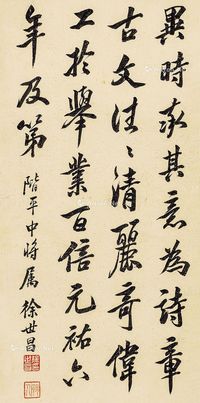 異時取其意為詩章
古文往〻清麗奇偉
工於舉業百倍元祐六
年及第
階平中將屬
徐世昌